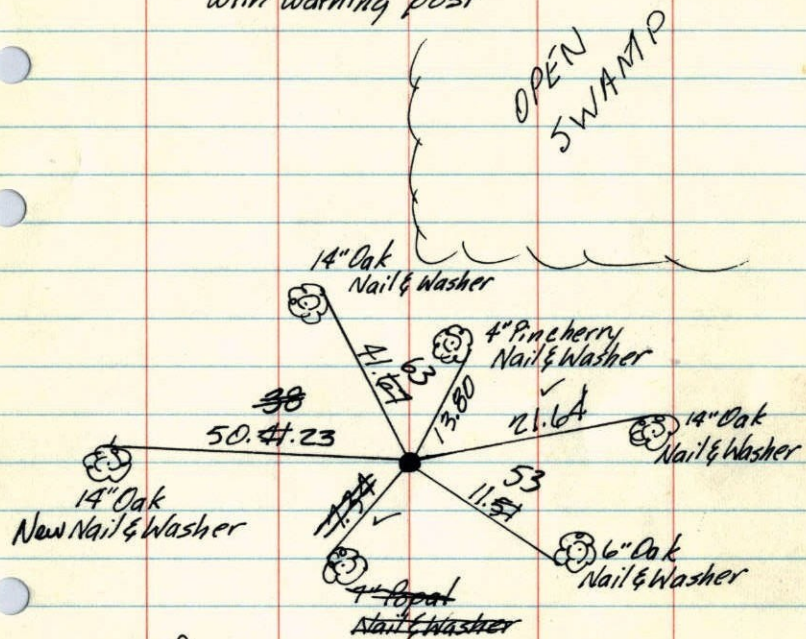 with warning post
OPEN
SWAMP
14" Oak
Nail & Washer
4" Pincherry
Nail & Washer
41.
63
13.80
21.64
14" Oak
Nail & Washer
38
50.41.23
14" Oak
New Nail & Washer
53
11.51
7.34
6" Oak
Nail & Washer
4" Popal
Nail & Washer